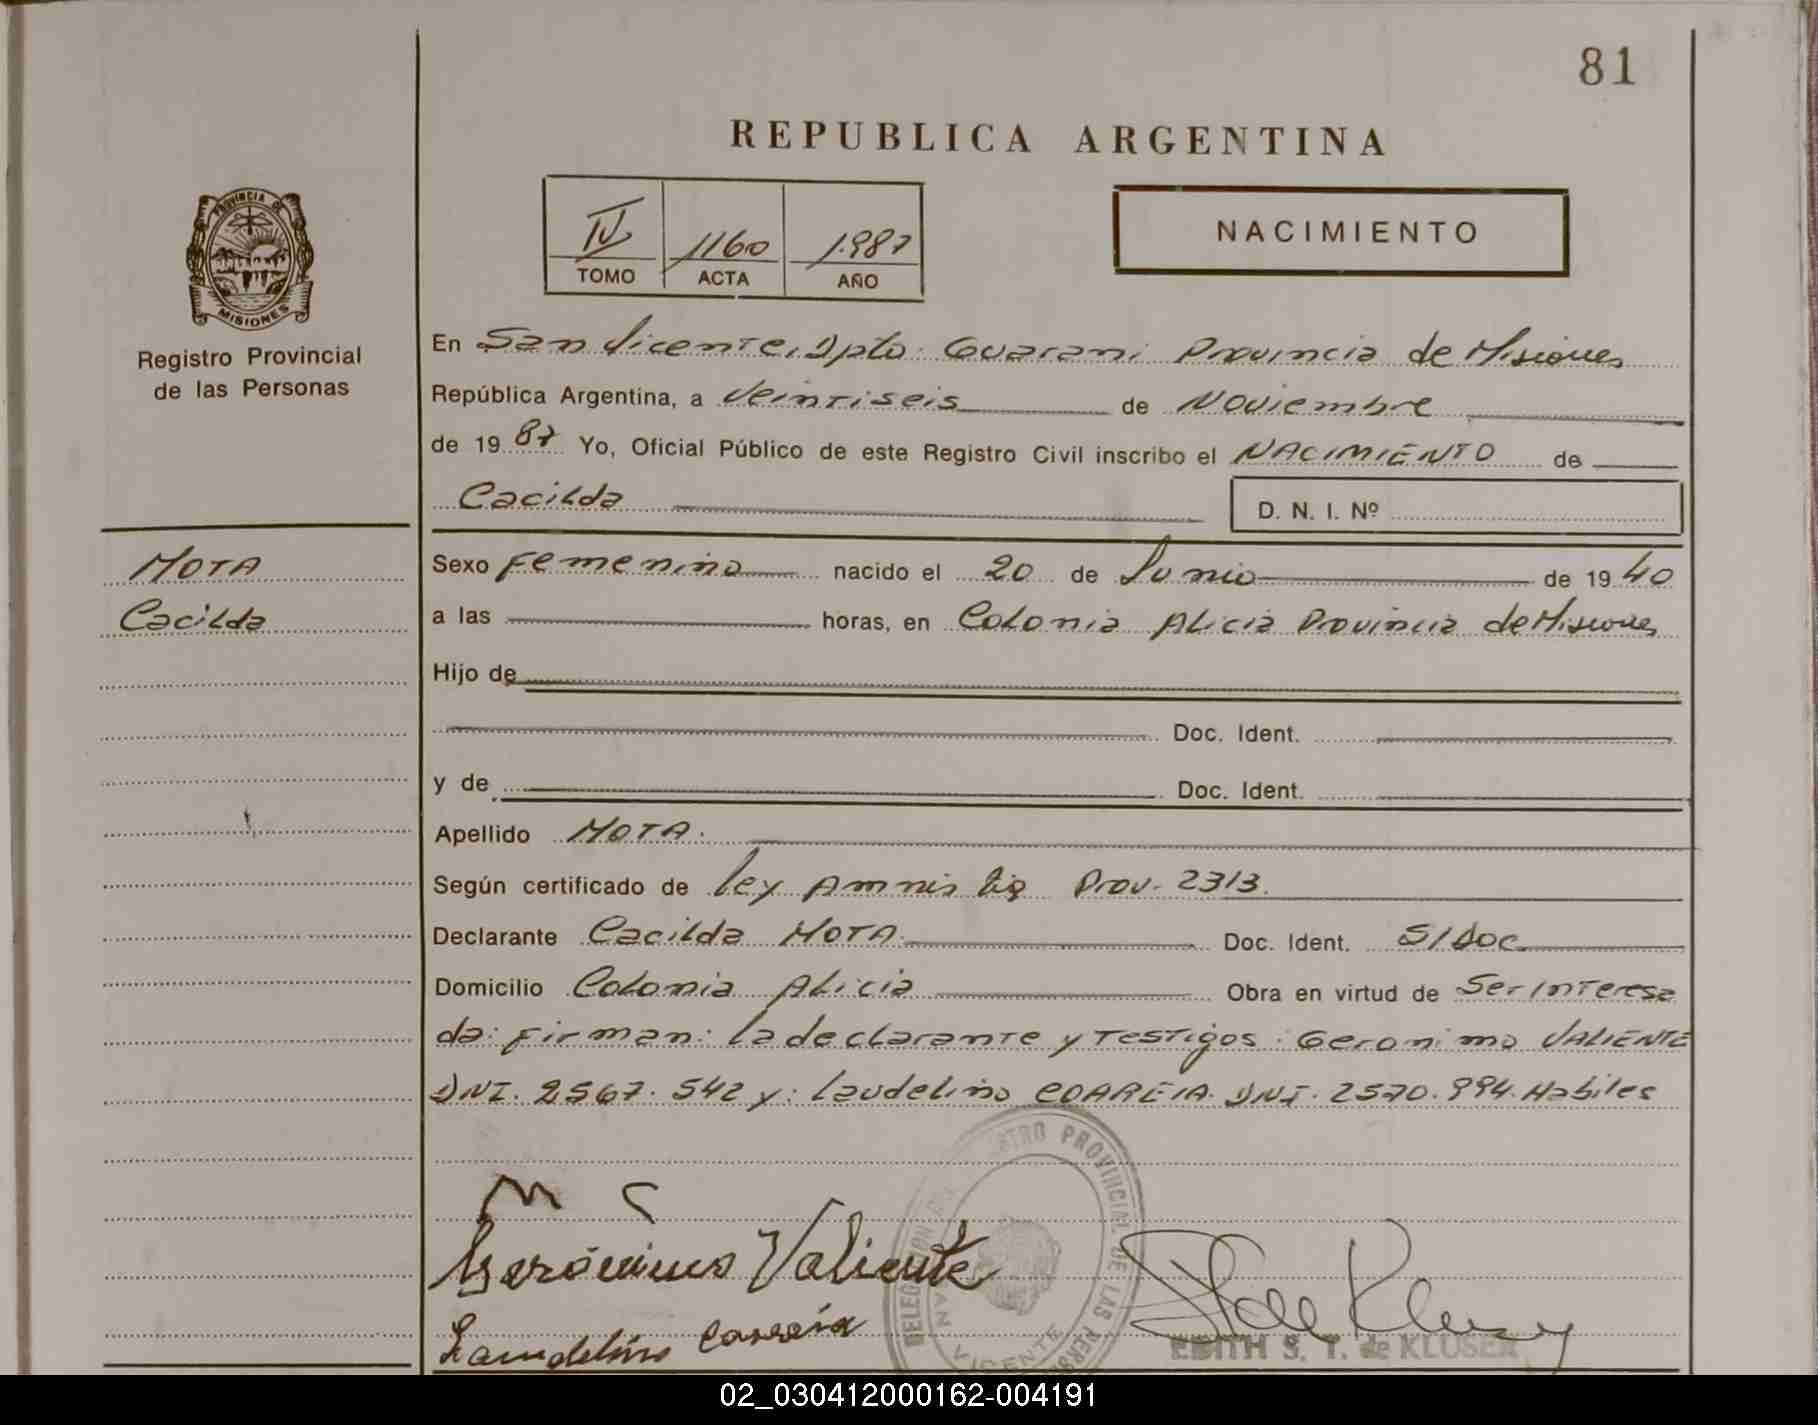 81
REPUBLICA ARGENTINA
PROVINCIA DE
MISIONES
Registro Provincial
de las Personas
IV 1160 1.987
TOMO ACTA AÑO
NACIMIENTO
En San Vicente, Dpto. Guarani Provincia de Misiones
República Argentina, a Veintiseis de Noviembre
de 19 87 Yo, Oficial Público de este Registro Civil inscribo el NACIMIENTO de
Cacilda
D. N. I. Nº
MOTA
Cacilda
Sexo Femenino nacido el 20 de Junio de 19 40
a las horas, en Colonia Alicia Provincia de Misiones
Hijo de
Doc. Ident.
y de Doc. Ident.
Apellido MOTA.
Según certificado de Ley Amnistia Prov. 2313.
Declarante Cacilda MOTA Doc. Ident. S/Doc
Domicilio Colonia Alicia Obra en virtud de Ser interesa
da: Firman: la declarante y Testigos: Geronimo VALIENTE
DNI. 2567.542 y: Laudelino CORREIA. DNI. 2570.994. Habiles
M C
Gerónimo Valiente
Laudelino Correia
DELEGACION REGISTRO PROVINCIAL DE LAS PERSONAS
SAN VICENTE
EDITH S. T. de KLUSER
02_030412000162-004191